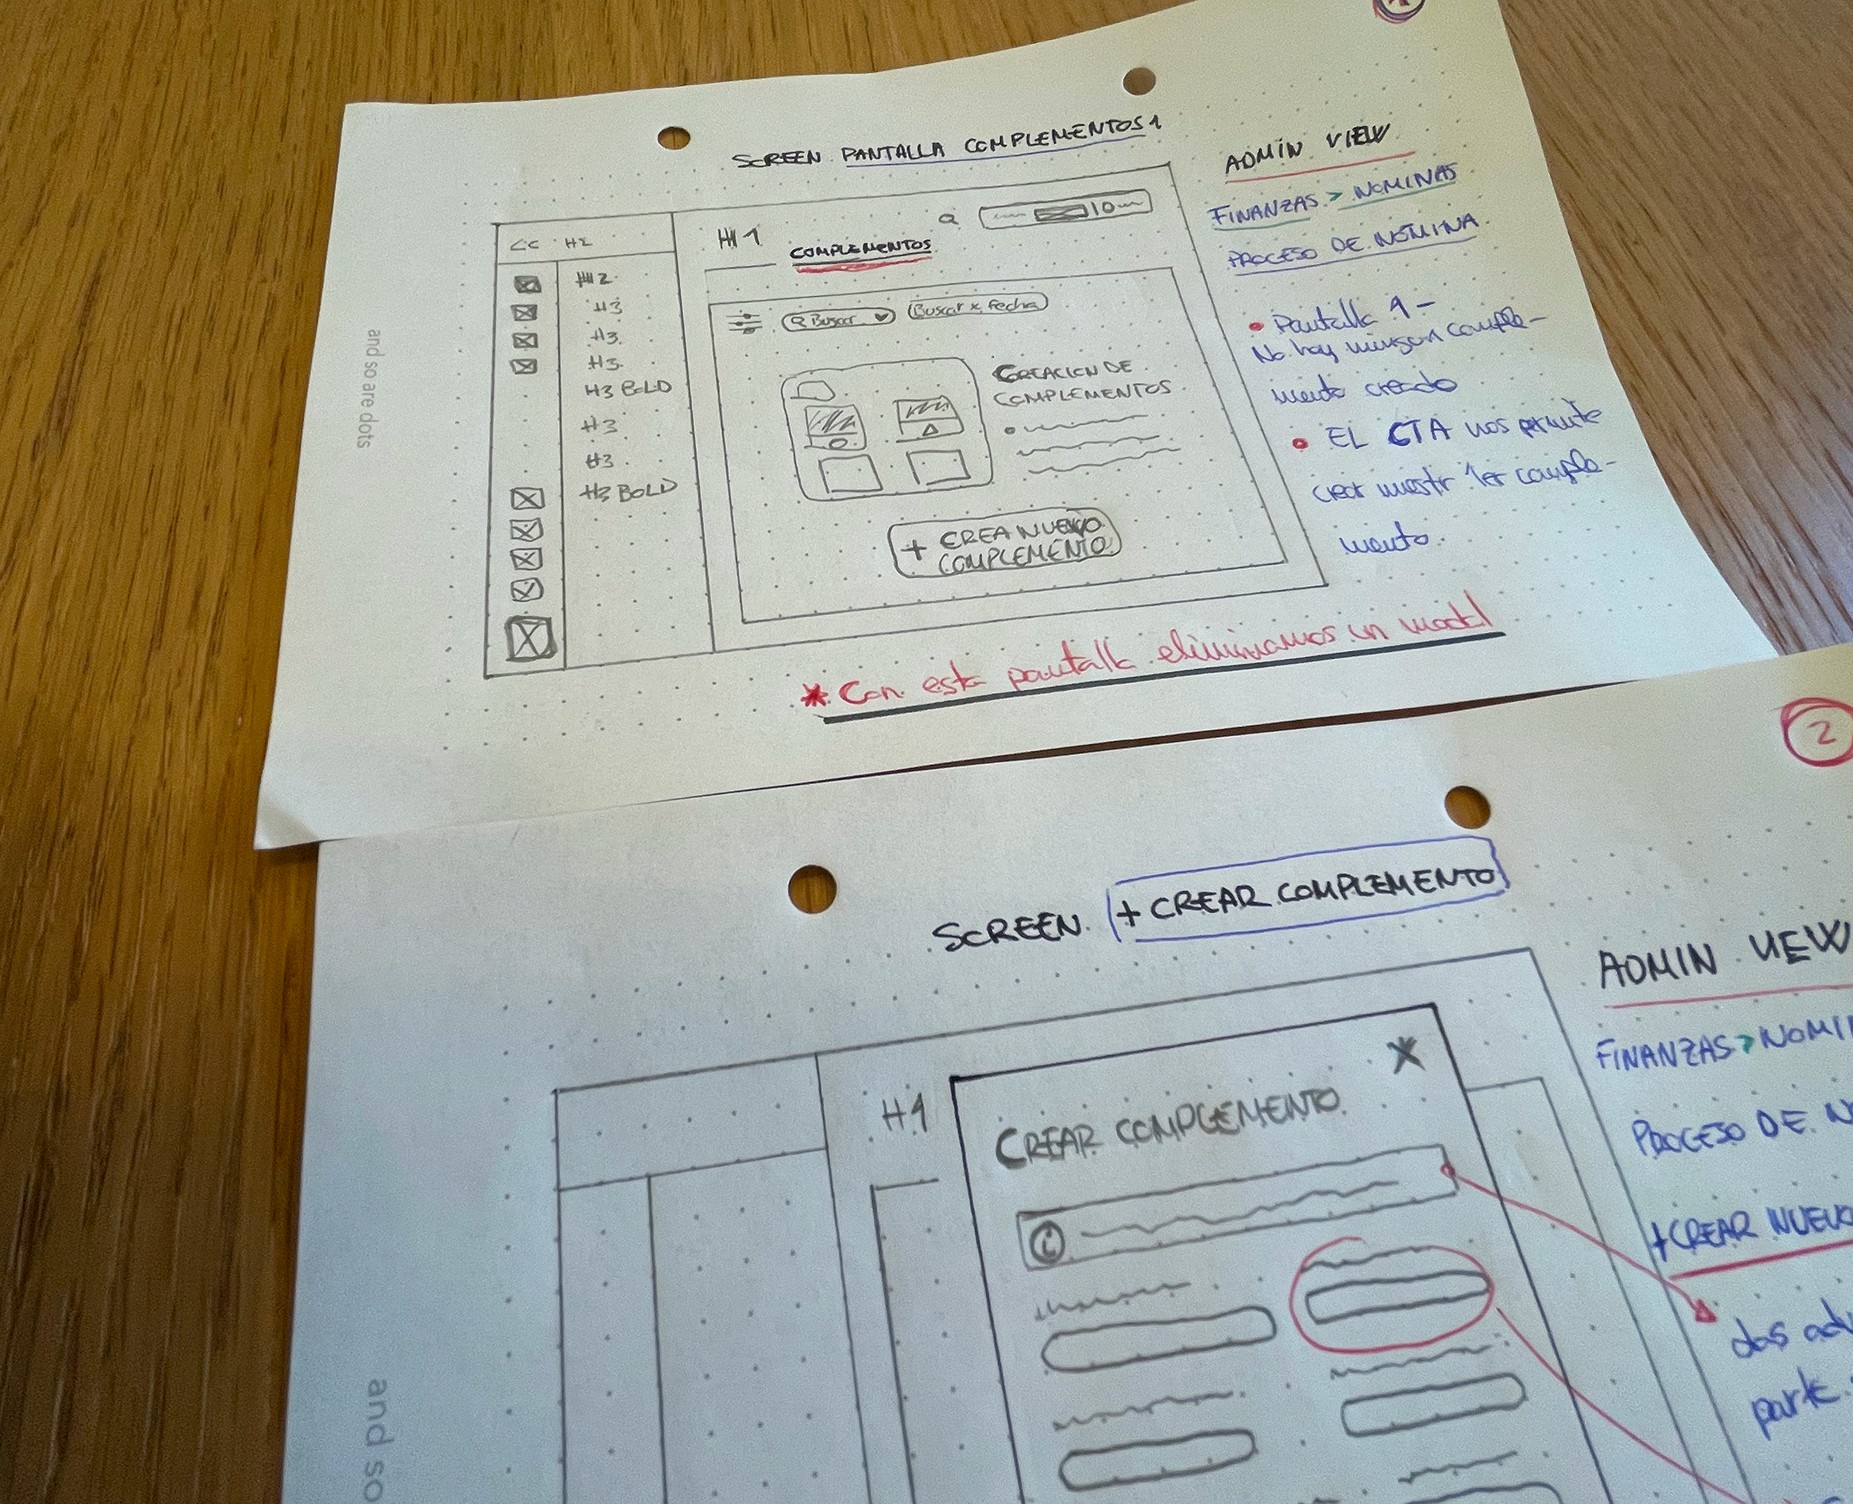 SCREEN PANTALLA COMPLEMENTOS 1
ADMIN VIEW
FINANZAS > NOMINAS
PROCESO DE NOMINA
• Pantalla 1 -
No hay ningun comple-
mento creado
• EL CTA nos permite
crear nuestr 1er comple-
mento.
H2
H1
COMPLEMENTOS
H2
H3
H3.
H3.
H3 BOLD
H3
H3
H3 BOLD
Buscar
Buscar x fecha
CREACION DE
COMPLEMENTOS
+ CREA NUEVO
COMPLEMENTO
* Con esta pantalla eliminamos un modal
and so are dots
2
SCREEN + CREAR COMPLEMENTO
ADMIN VIEW
FINANZAS > NOMI
PROCESO DE N
+ CREAR NUEVO
parte
H1
CREAR COMPLEMENTO
X
i
and so